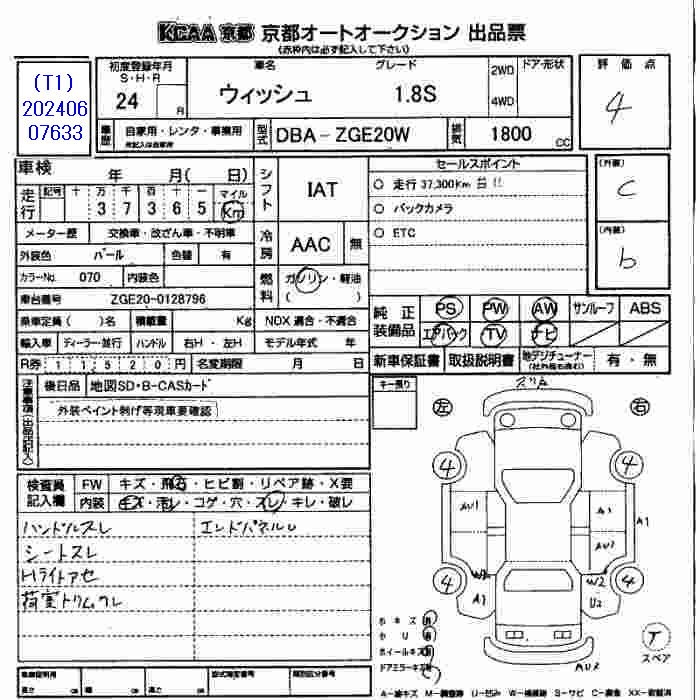 KCAA 京都 京都オートオークション 出品票
(赤枠内は必ず記入して下さい)
(T1)
202406
07633
初度登録年月
S・H・R
24
R
車名
グレード
ウィッシュ
1.8S
2WD
4WD
ドア・形状
評価点
4
車歴
自家用・レンタ・事業用
型式
DBA-ZGE20W
排気
1800
CC
車検
年 月( 日)
走行
記号
十 万 千 百 十 一
3 7 3 6 5
マイル
Km
シフト
IAT
セールスポイント
○ 走行 37,300Km 台!!
○ バックカメラ
○ ETC
(外装)
C
(内装)
b
メーター歴
交換車・改ざん車・不明車
外装色
パール
色替
有
冷房
AAC
無
カラーNo.
070
内装色
燃料
ガソリン・軽油
( )
車台番号
ZGE20-0128796
純正装備品
PS
PW
AW
サンルーフ
ABS
エアバック
TV
ナビ
乗車定員
( )名
積載量
Kg
NOX 適合・不適合
輸入車
ディーラー・並行
ハンドル
右H・左H
モデル年式
年
新車保証書
取扱説明書
地デジチューナー
(社外品も含む)
有・無
R券
11520円
名変期限
月 日
注意事項(出品店記入)
後日品
地図SD・B-CASカード
外装ペイント剥げ等現車要確認
キー残り
スリム
左
右
検査員記入欄
FW
キズ・飛石・ヒビ割・リペア跡・X要
内装
キズ・汚レ・コゲ・穴・スレ・キレ・破レ
ハンドルスレ
エンドパネルU
シートスレ
Hライトアセ
荷室トリムスレ
4
4
AU1
A1
A1
AU1
4
4
W2
W2
A1
U2
AU2
小キズ 有
ホイールキズ
ドアミラーキズ
T
スペア
車庫証明
長さ
cm
幅
cm
高さ
cm
型式指定番号
類別区分番号